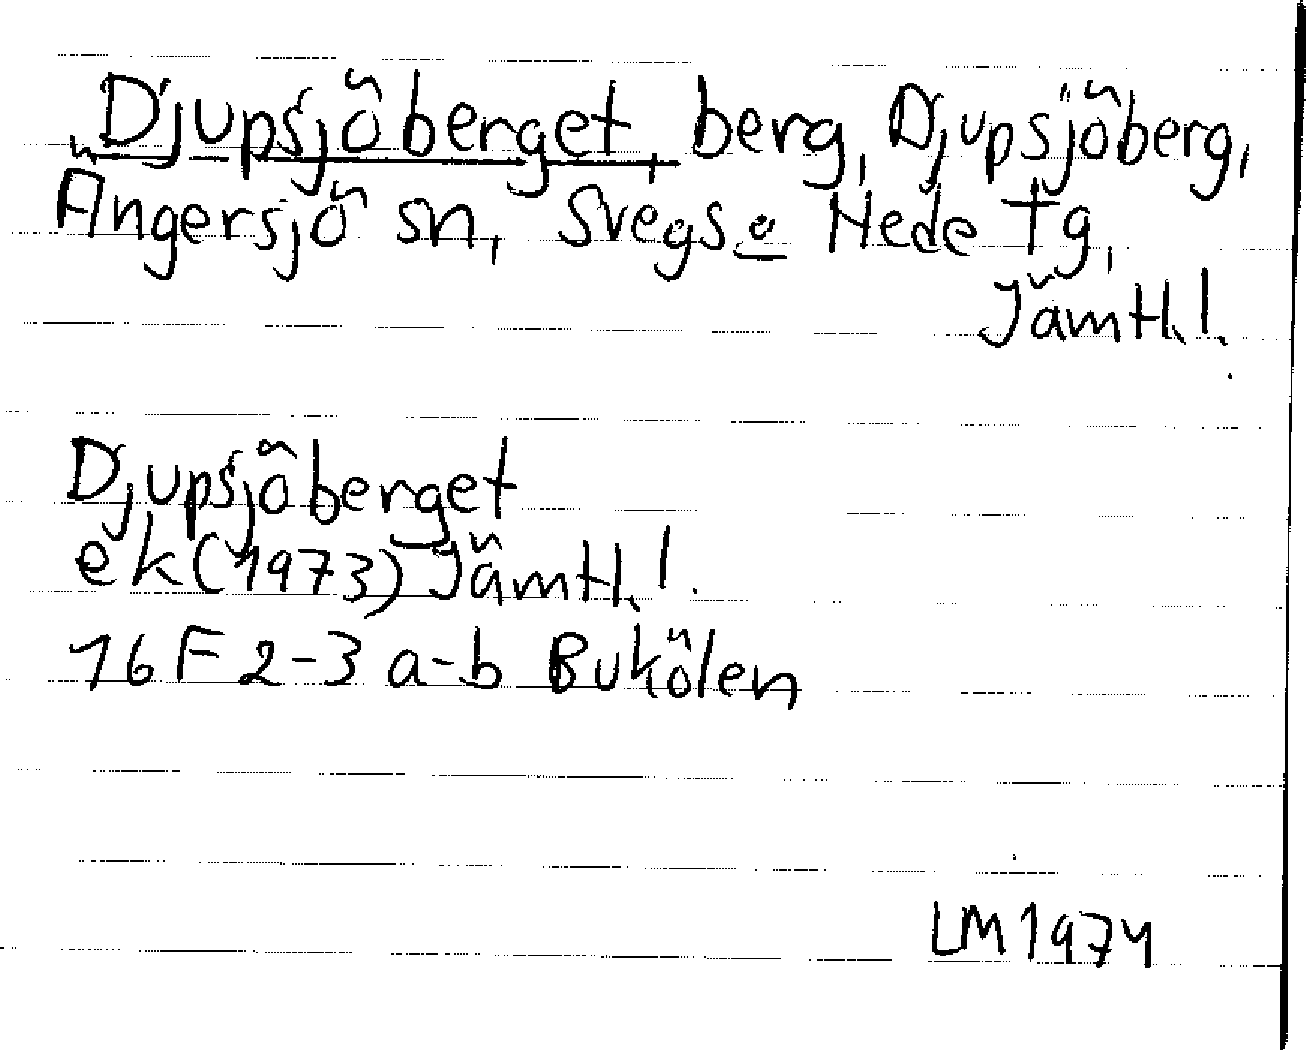 Djupsjöberget, berg, Djupsjöberg,
Ängersjö sn, Svegs o Hede tg,
Jämtl. l.
Djupsjöberget
ek (1973) Jämtl. l.
16 F 2-3 a-b Bukölen
LM 1974